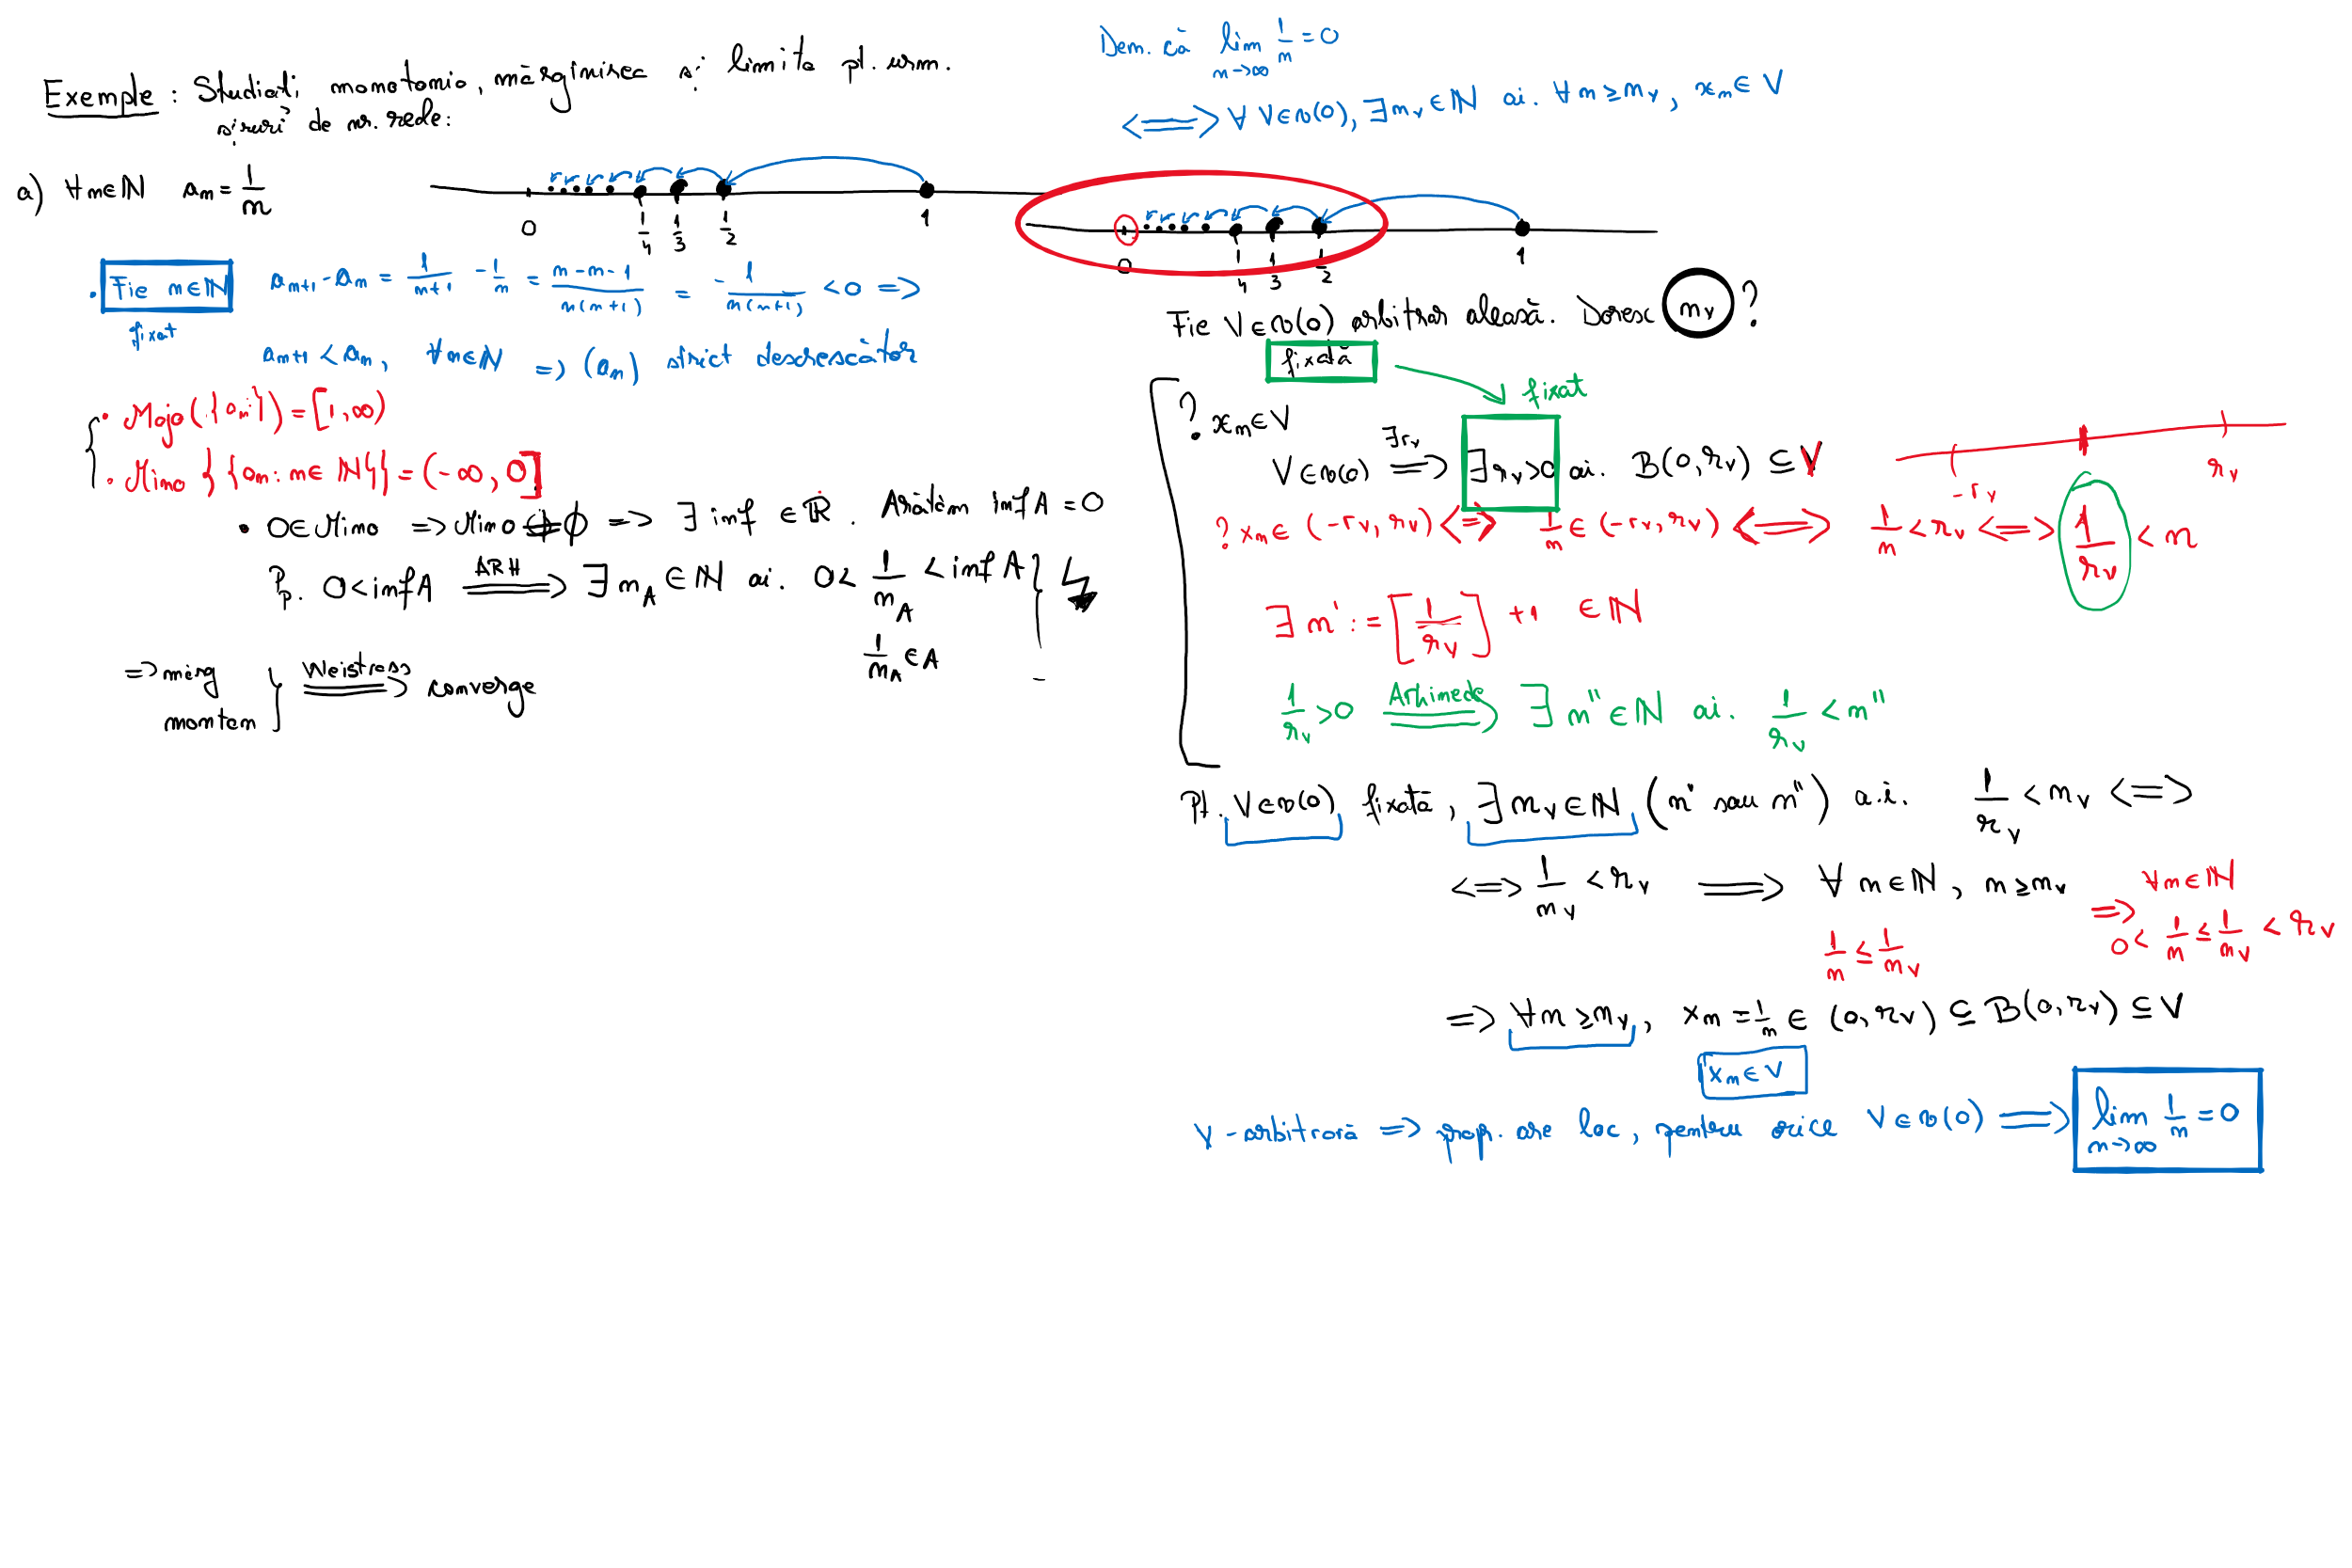 Exemple : Studiați monotonia, mărginirea și limita pt. urm.
șiruri de nr. reale:
a) ∀n∈ℕ aₙ = 1/n
0 1/4 1/3 1/2 1
. Fie n∈ℕ aₙ₊₁ - aₙ = 1/(n+1) - 1/n = (n-n-1)/(n(n+1)) = -1/(n(n+1)) < 0 =>
fixat
aₙ₊₁ < aₙ, ∀n∈ℕ => (aₙ) strict descrescător
• Majo({aₙ}) = [1,∞)
• Mino {{aₙ: n∈ℕ}} = (-∞, 0]
• 0∈Mino => Mino ≠ ∅ => ∃ inf ∈ ℝ. Arătăm inf A = 0
Pp. 0 < inf A ARH ==> ∃ n_A ∈ ℕ ai. 0 < 1/n_A < inf A } ↯
1/n_A ∈ A
=> mărg
monton } Weistrass ==> converge
Dem. că lim n→∞ 1/n = 0
<=> ∀ V∈𝒱(0), ∃ n_V ∈ ℕ ai. ∀ n ≥ n_V, xₙ ∈ V
0 1/4 1/3 1/2 1
Fie V∈𝒱(0) arbitrar aleasă. Doresc n_V ?
fixată
fixat
? xₙ∈V
V∈𝒱(0) ∃r_V ==> ∃ r_V>0 ai. B(0, r_V) ⊆ V
-r_V r_V
? xₙ∈ (-r_V, r_V) <=> 1/n ∈ (-r_V, r_V) <=> 1/n < r_V <=> 1/r_V < n
∃ n' := [1/r_V] + 1 ∈ ℕ
1/r_V > 0 Arhimede ==> ∃ n'' ∈ ℕ ai. 1/r_V < n''
Pt. V∈𝒱(0) fixată, ∃ n_V ∈ ℕ (n' sau n'') a.i. 1/r_V < n_V <=>
<=> 1/n_V < r_V ==> ∀ n∈ℕ, n ≥ n_V
1/n ≤ 1/n_V
∀n∈ℕ
=> 0 < 1/n ≤ 1/n_V < r_V
=> ∀n ≥ n_V, xₙ = 1/n ∈ (0, r_V) ⊆ B(0, r_V) ⊆ V
xₙ∈V
V - arbitrară => prop. are loc, pentru orice V∈𝒱(0) ==> lim n→∞ 1/n = 0